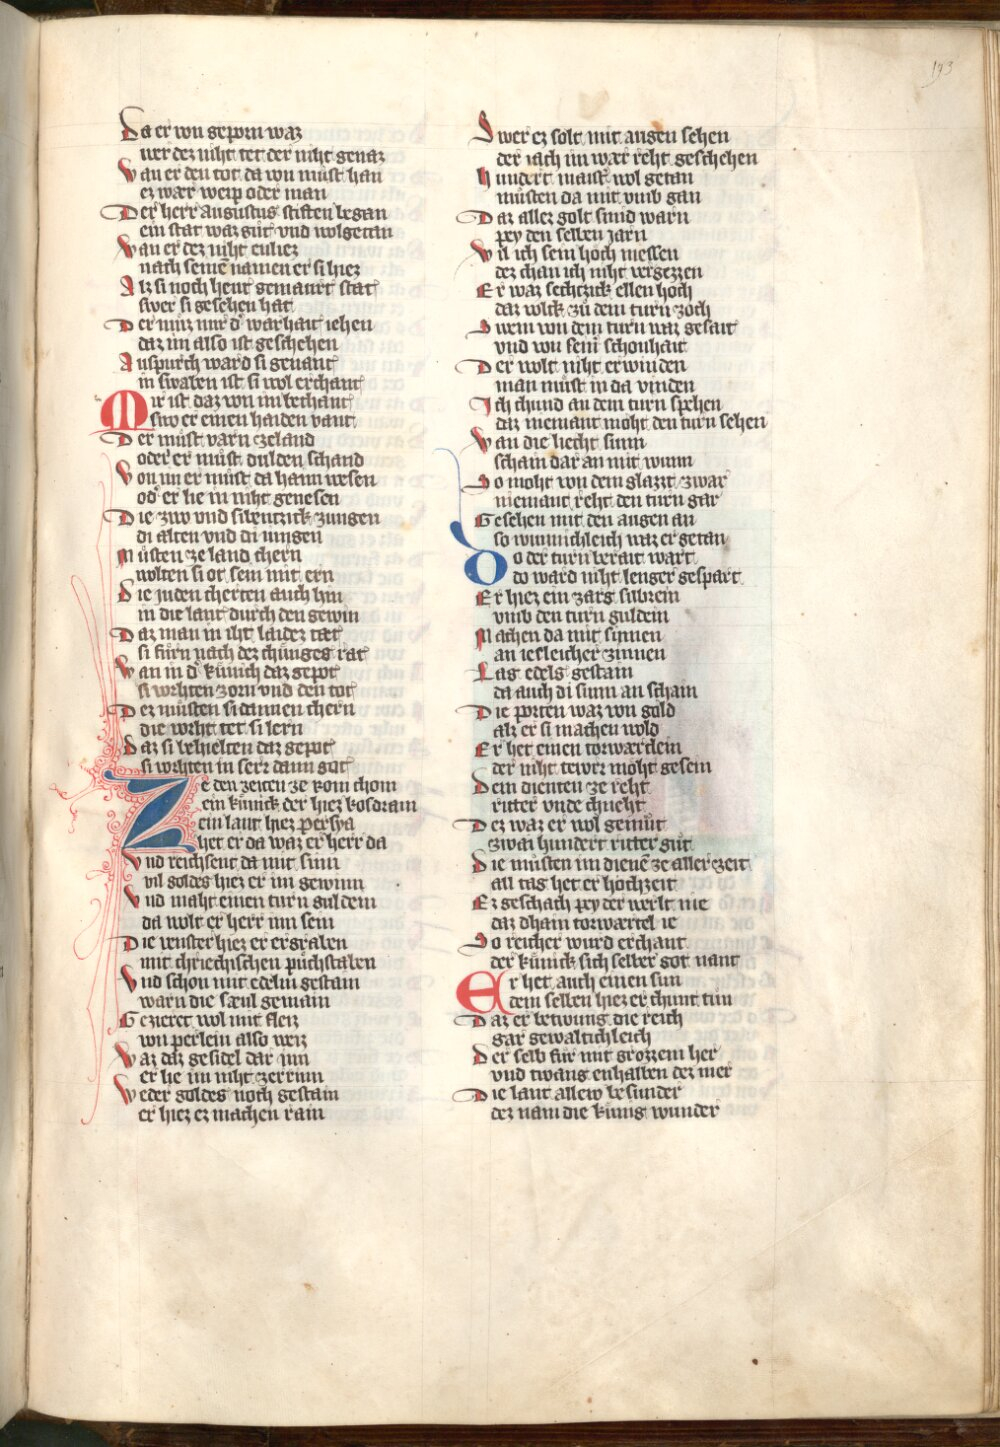 193
Da er von geporn waz
wer dez niht tet der niht genaz
Wan er den tot da von muͤst han
ez wær weip oder man
Der herr Augustus stiften began
ein stat waz guͤt vnd wolgetan
Wan er dez niht enliez
nach seinē namen er si hiez
Alz si noch heut gemaurt stat
swer si gesehen hat
Der muͤz mir d' warhait iehen
daz im also ist geschehen
Auspurch ward si genant
in swaben ist si wol erchant
Mir ist daz von im bechant
swo er einen haiden vant
Der muͤst varn ze land
oder er muͤst dulden schand
Von im er muͤst da haim wesen
od' er lie in niht genesen
Die zwo vnd sibentzick zungen
di alten vnd di iungen
Muͤsten ze land chern
wolten si ot sein mit ern
Die juden cherten auch hin
in die lant durch den gewin
Daz man in iht laidez tæt
si fuͤrn nach dez chuͤnges rat
Wan in d' kuͤnich daz gepot
si vorhten zorn vnd den tot
Dez muͤsten si dannen chern
die vorht tet si lern
Daz si behielten daz gepot
si vorhten in serr dann got
Ze den zeiten ze Rom chom
ein kuͤnick der hiez Kosdram
ein lant hiez Persya
het er da waz er herr da
Vnd reichsent da mit sinn
vil goldes hiez er im gewinn
Vnd maht einen turn guldein
da wolt er herr inn sein
Die venster hiez er ergraben
mit chriechischen puͤchstaben
Vnd schon mit edelm gestain
warn die sæul gemain
Gezieret wol mit fleiz
von perlein also weiz
Waz daz gesidel dar inn
er lie im niht zerrinn
Weder goldes noch gestain
er hiez ez machen rain
Swer ez solt mit augen sehen
der iach im wær reht geschehen
Hundert maist' wol getan
muͤsten da mit vmb gan
Daz allez golt smid warn
pey den selben iarn
Wil ich sein hoch messen
dez chan ich niht vergezzen
Er waz sechczick ellen hoch
daz wolck zuͦ dem turn zoch
Swem von dem turn waz gesait
vnd von seinr schonhait
Der wolt niht erwinden
man muͤst in da vinden
Ich chund an dem turn spehen
daz niemant moht den turn sehen
Wan die liecht sunn
schain dar an mit wunn
So moht von dem glazz zwar
niemant reht den turn gar
Gesehen mit den augen an
so wunnichleich waz er getan
Do der turn berait wart
do ward niht lenger gespart
Er hiez ein zarg silbrein
vmb den turn guldein
Machen da mit sinnen
an iesleicher zinnen
Lag edels gestain
da auch di sunn an schain
Die porten waz von gold
alz er si machen wold
Er het einen torwærtlein
der niht tewer moht gesein
Dem dienten ze reht
ritter vnde chneht
Dez waz er wol gemuͤt
zwai hundert ritter guͤt
Die muͤsten im dienē ze aller zeit
all tag het er hochzeit
Ez geschach pey der werlt nie
daz dhain torwærtel ie
So reicher wurd erchant
der kuͤnick sich selber got nant
Er het auch einen sun
dem selben hiez er chunt tun
Daz er betwung die reich
gar gewaltichleich
Der selb fuͤr mit grozzem her
vnd twang enhalben dez mer
Die lant allew besunder
dez nam die kuͤnig wunder